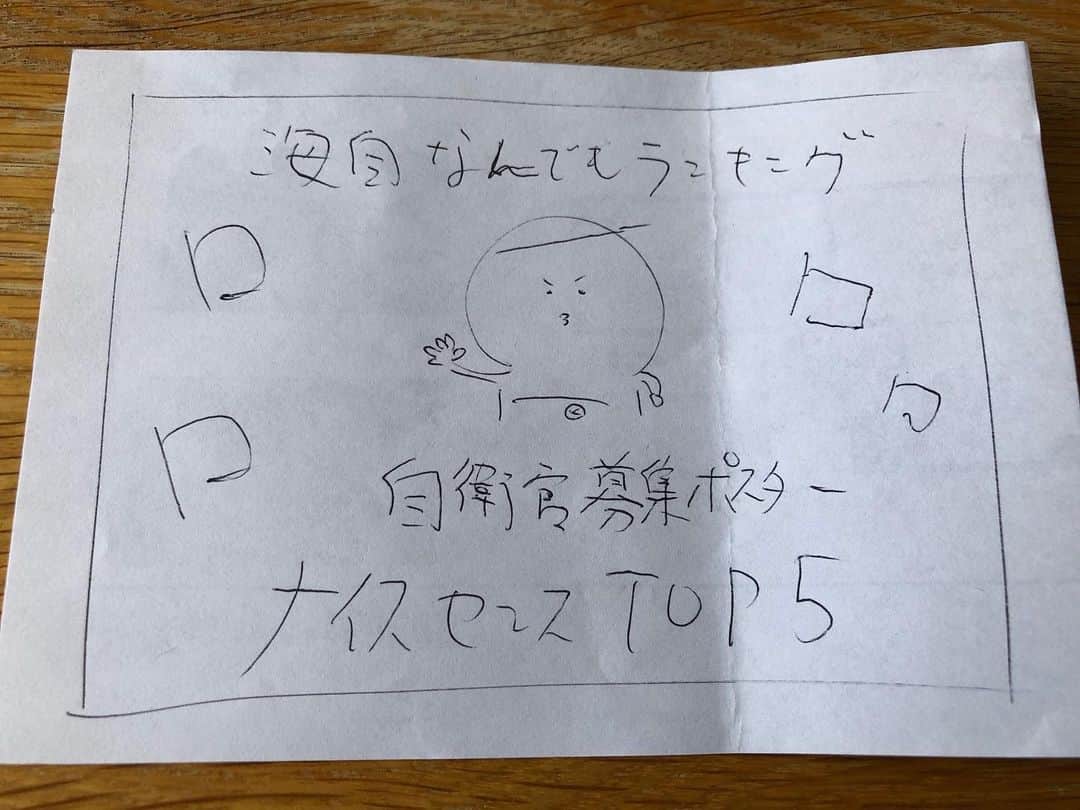 海自なんでもランキング
自衛官募集ポスター
ナイスセンスTOP5